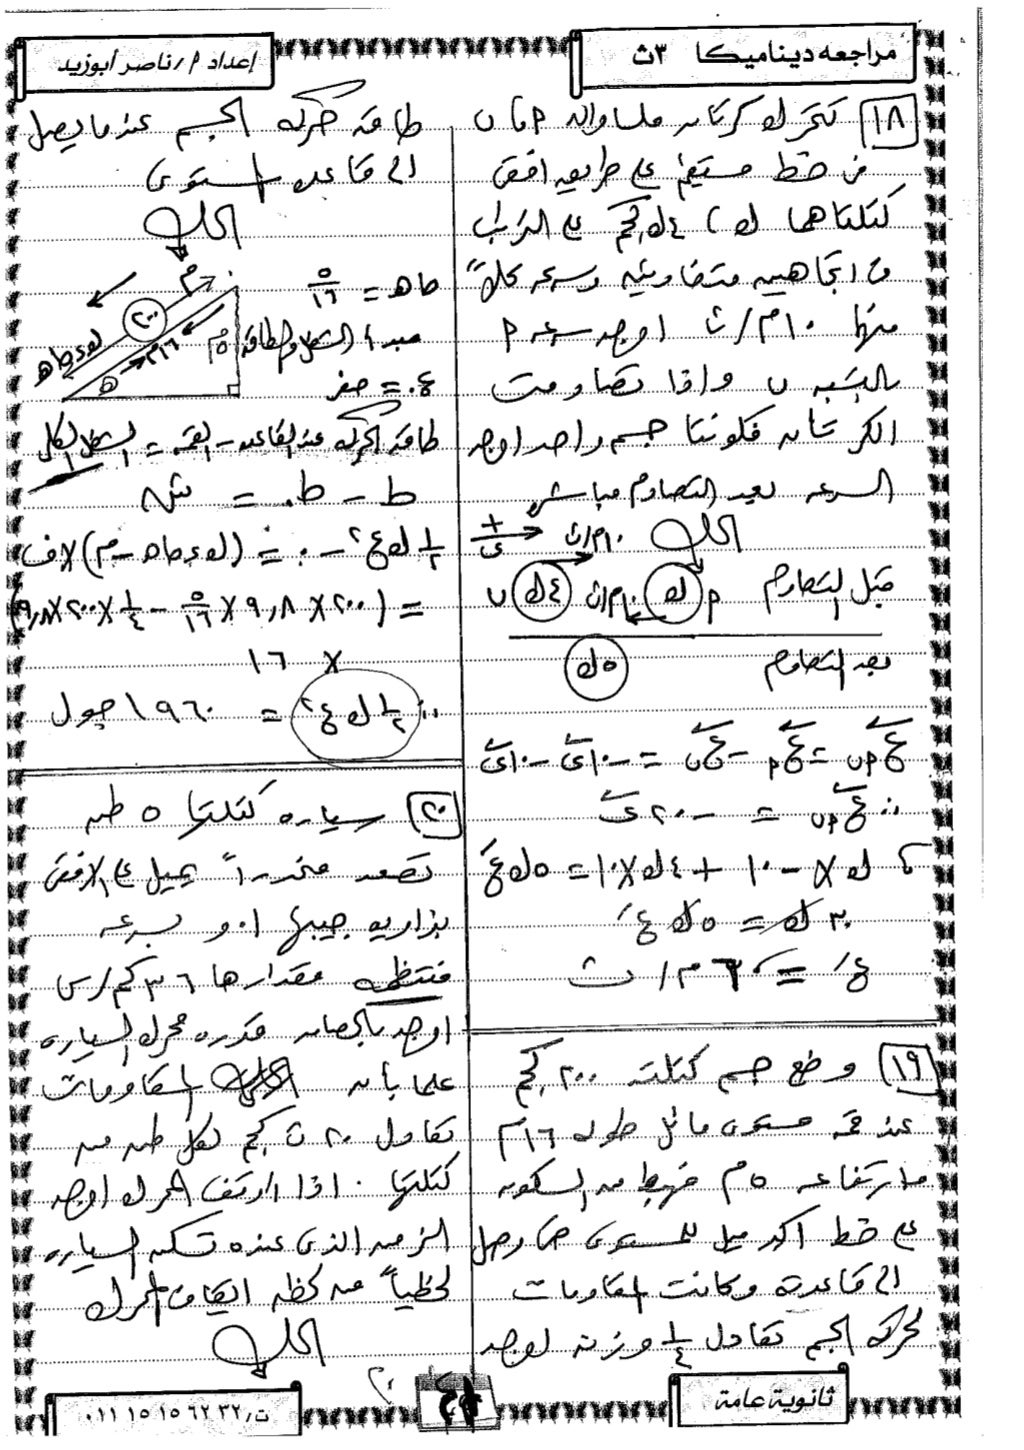 مراجعه ديناميكا ٣ث
إعداد م/ ناصر أبوزيد
١٨ تتحرك كرتان ملساوان م، ن
فى خط مستقيم على طريق افقى
كتلتاهما ك ، ٤ك كجم على الترتيب
فى اتجاهين متضادين وسرعه كلاً
منهما ١٠م/ث اوجد سرعه م
بالنسبه ن واذا تصادمت
الكرتان فكونتا جسم واحد اوجد
السرعه بعد التصادم مباشره
الحل
١٠م/ث
+
ى
قبل التصادم م ك ١٠م/ث ٤ك ن
بعد التصادم ٥ك
ع م ن = ع م - ع ن = -١٠ى - ١٠ى
∴ ع م ن = -٢٠ ى
ك × -١٠ + ٤ك × ١٠ = ٥ك ع/
٣٠ك = ٥ك ع/
ع/ = ٦ م/ث
١٩ وضع جسم كتلته ٢٠٠ كجم
عند قمة مستوى مائل طوله ١٦م
وارتفاعه ٥م فهبط من السكون
على خط اكبر ميل للمستوى حتى وصل
الى قاعدته وكانت المقاومات
لحركه الجسم تعادل ١/٤ وزنه اوجد
طاقه حركه الجسم عندما يصل
الى قاعده المستوى
الحل
حا هـ = ٥/١٦
مبدأ الشغل والطاقه
ع. = صفر
م
٢٠٠
١٦م
٥م
ك ء حا هـ
هـ
طاقه الحركه عند القاعده - القمه = الشغل الكلى
ط - ط. = ش
١/٢ ك ع٢ - ٠ = (ك ء حا هـ - م) × ف
= (٢٠٠ × ٩,٨ × ٥/١٦ - ١/٤ × ٢٠٠ × ٩,٨)
× ١٦
∴ ١/٢ ك ع٢ = ١٩٦٠ جول
٢٠ سياره كتلتها ٥ طن
تصعد منحدراً يميل على الافقى
بزاويه جيبها ٠,١ و بسرعه
منتظمه مقدارها ٣٦ كم/س
اوجد بالحصان قدره محرك السياره
علما بأن المقاومات
تعادل ٢٠ ث كجم لكل طن من
كتلتها . اذا اوقف المحرك اوجد
الزمن الذى عنده تسكن السياره
لحظياً من لحظه ايقاف المحرك
الحل
ثانوية عامة
ت/ ٠١١١٥١٥٦٢٣٢